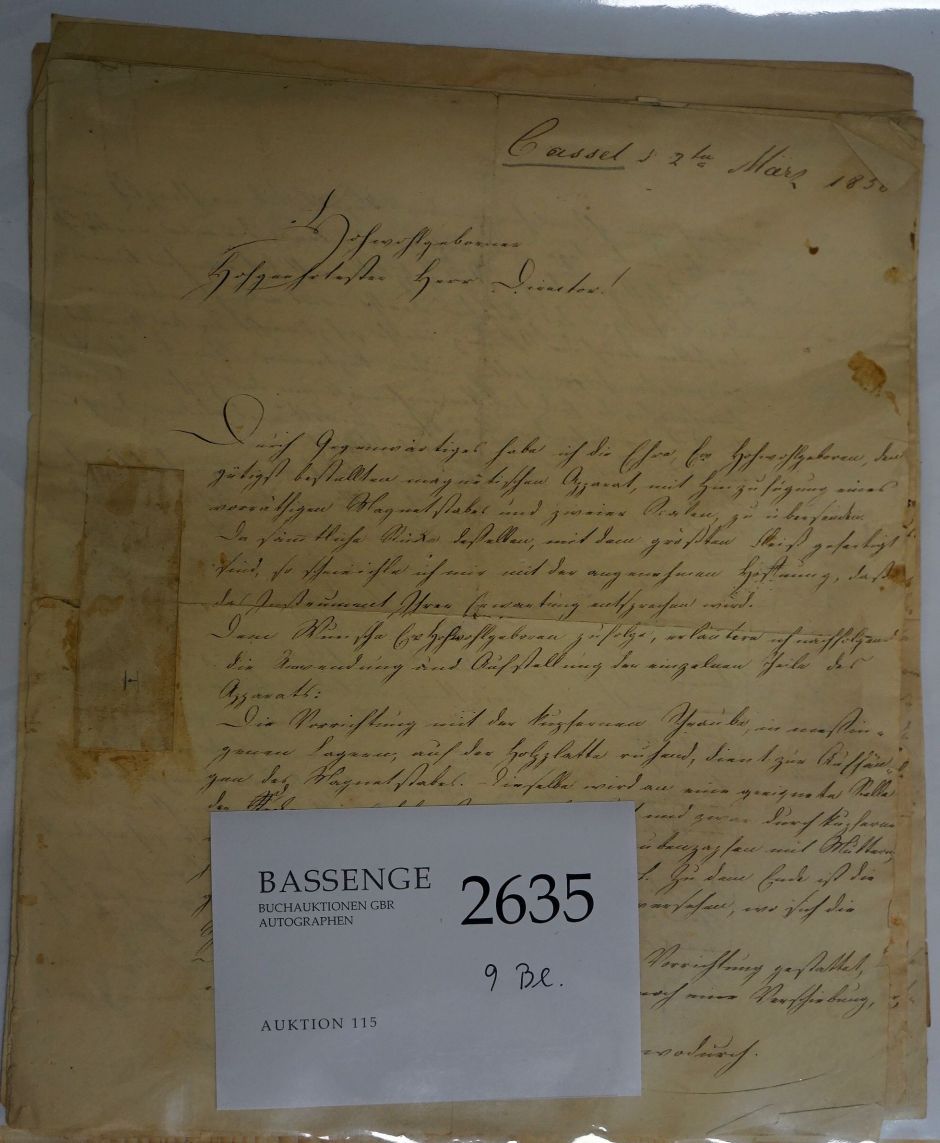 Cassel d 2ten März 1850
Hochwohlgeborner
Hochgeehrtester Herr Director!
Durch Gegenwärtiges habe ich die Ehre, Ew Hochwohlgeboren, den
gütigst bestellten magnetischen Apparat, mit Hinzufügung eines
vorräthigen Magnetstabes und zweier Scalen, zu übersenden.
Da sämtliche Stücke desselben, mit dem größten Fleiß gefertigt
sind, so schmeichle ich mir mit der angenehmen Hoffnung, daß
das Instrument Ihrer Erwartung entsprechen wird.
Dem Wunsche Ew Hochwohlgeboren zufolge, erläutere ich nachfolgend
die Anwendung und Aufstellung der einzelnen Theile des
Apparats:
Die Vorrichtung mit der kupfernen Schraube, in messin-
genen Lagern, auf der Holzplatte ruhend, dient zur Aufhän-
gen des Magnetstabes. Dieselbe wird an eine geeignete Stelle
der
und zwar durch kupferne
mit Muttern,
Zu dem Ende ist die
versehen, wo sich die
Vorrichtung gestattet,
noch eine Verschiebung,
wodurch.
BASSENGE
BUCHAUKTIONEN GBR
AUTOGRAPHEN
2635
9 Bl.
AUKTION 115